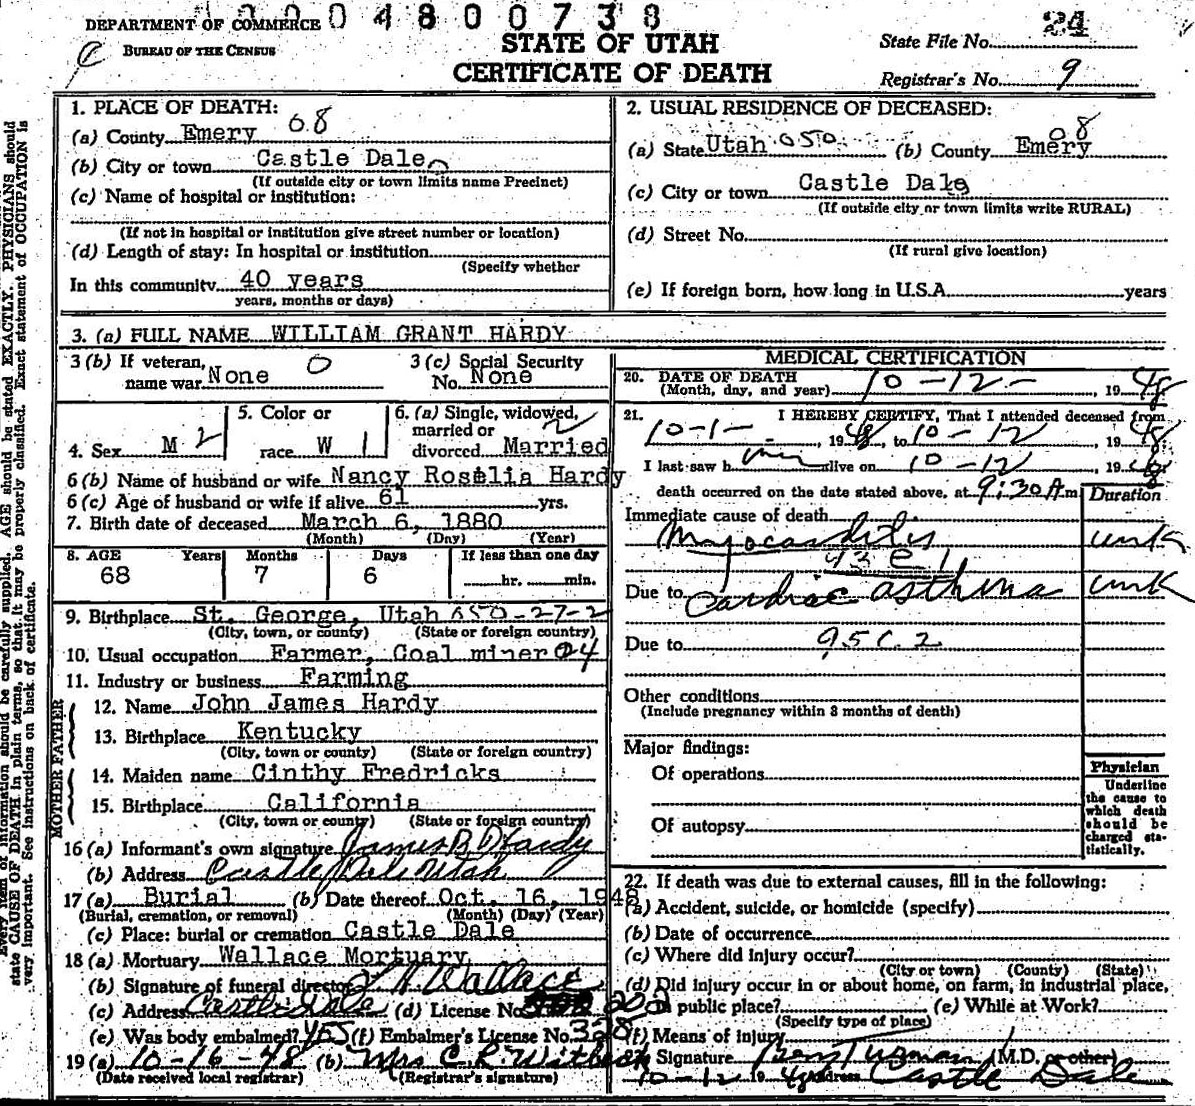 DEPARTMENT OF COMMERCE
004800738
BUREAU OF THE CENSUS
STATE OF UTAH
CERTIFICATE OF DEATH
State File No. 24
Registrar's No. 9
Every item of information should be carefully supplied. AGE should be stated EXACTLY. PHYSICIANS should
state CAUSE OF DEATH in plain terms, so that it may be properly classified. Exact statement of OCCUPATION is
very important. See instructions on back of certificate.
1. PLACE OF DEATH:
(a) County Emery 08
(b) City or town Castle Dale
(If outside city or town limits name Precinct)
(c) Name of hospital or institution:
(If not in hospital or institution give street number or location)
(d) Length of stay: In hospital or institution
(Specify whether
In this community 40 years
years, months or days)
2. USUAL RESIDENCE OF DECEASED:
(a) State Utah 050 (b) County Emery 08
(c) City or town Castle Dale
(If outside city or town limits write RURAL)
(d) Street No.
(If rural give location)
(e) If foreign born, how long in U.S.A. years
3. (a) FULL NAME WILLIAM GRANT HARDY
3 (b) If veteran, name war None 0
3 (c) Social Security No. None
4. Sex M 2
5. Color or race W 1
6. (a) Single, widowed, married or divorced Married 2
6 (b) Name of husband or wife Nancy Roselia Hardy
6 (c) Age of husband or wife if alive 61 yrs.
7. Birth date of deceased March 6, 1880
(Month) (Day) (Year)
8. AGE Years Months Days If less than one day
68 7 6 hr. min.
9. Birthplace St. George, Utah 050-27-2
(City, town, or county) (State or foreign country)
10. Usual occupation Farmer, Coal miner 04
11. Industry or business Farming
FATHER
12. Name John James Hardy
13. Birthplace Kentucky
(City, town or county) (State or foreign country)
MOTHER
14. Maiden name Cinthy Fredricks
15. Birthplace California
(City, town or county) (State or foreign country)
16 (a) Informant's own signature James B D Hardy
(b) Address Castle Dale Utah
17 (a) Burial (b) Date thereof Oct. 16, 1948
(Burial, cremation, or removal) (Month) (Day) (Year)
(c) Place: burial or cremation Castle Dale
18 (a) Mortuary Wallace Mortuary
(b) Signature of funeral director Wallace
(c) Address Castle Dale (d) License No. 202
(e) Was body embalmed? YES (f) Embalmer's License No. 328
19 (a) 10-16-48 (b) Mrs C. R. Witbeck
(Date received local registrar) (Registrar's signature)
MEDICAL CERTIFICATION
20. DATE OF DEATH
(Month, day, and year) 10-12- 1948
21. I HEREBY CERTIFY, That I attended deceased from
10-1- , 1948, to 10-12 , 1948
I last saw him alive on 10-12 , 1948
death occurred on the date stated above, at 9:30 A m.
Duration
Immediate cause of death
Myocarditis unk
93 C 1
Due to Cardiac asthma unk
Due to 95C.2
Other conditions
(Include pregnancy within 3 months of death)
Major findings:
Of operations
Of autopsy
Physician
Underline
the cause to
which death
should be
charged sta-
tistically.
22. If death was due to external causes, fill in the following:
(a) Accident, suicide, or homicide (specify)
(b) Date of occurrence
(c) Where did injury occur?
(City or town) (County) (State)
(d) Did injury occur in or about home, on farm, in industrial place,
in public place? (e) While at Work?
(Specify type of place)
(f) Means of injury
Signature Turman (M.D. or other)
10-12 1948 Address Castle Dale